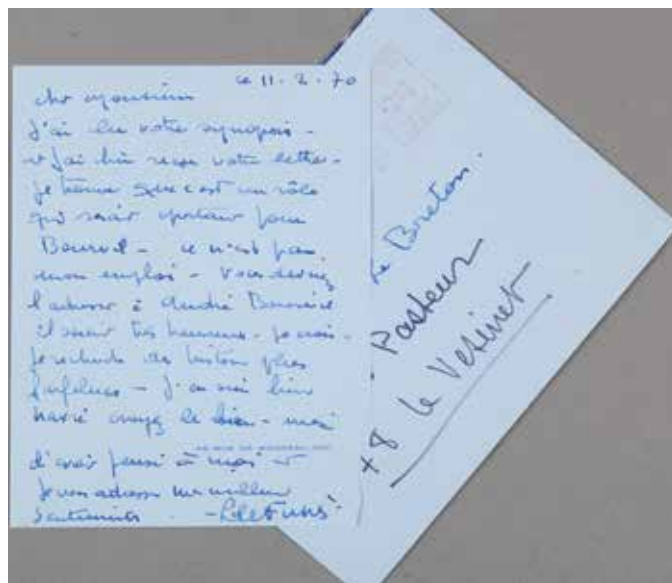 ce 11.2.70
cher Monsieur
J'ai lu votre synopsis -
et j'ai bien reçu votre lettre -
je trouve que c'est un rôle
qui serait épatant pour
Bourvil - ce n'est pas
mon emploi - Vous devriez
l'adresser à André Bourvil
il serait très heureux - je crois -
je recherche des histoires plus
farfelues - J'en suis bien
navré croyez le bien - merci
d'avoir pensé à moi - et
je vous adresse mes meilleurs
sentiments -
Breton.
Pasteur
78 le Vesinet